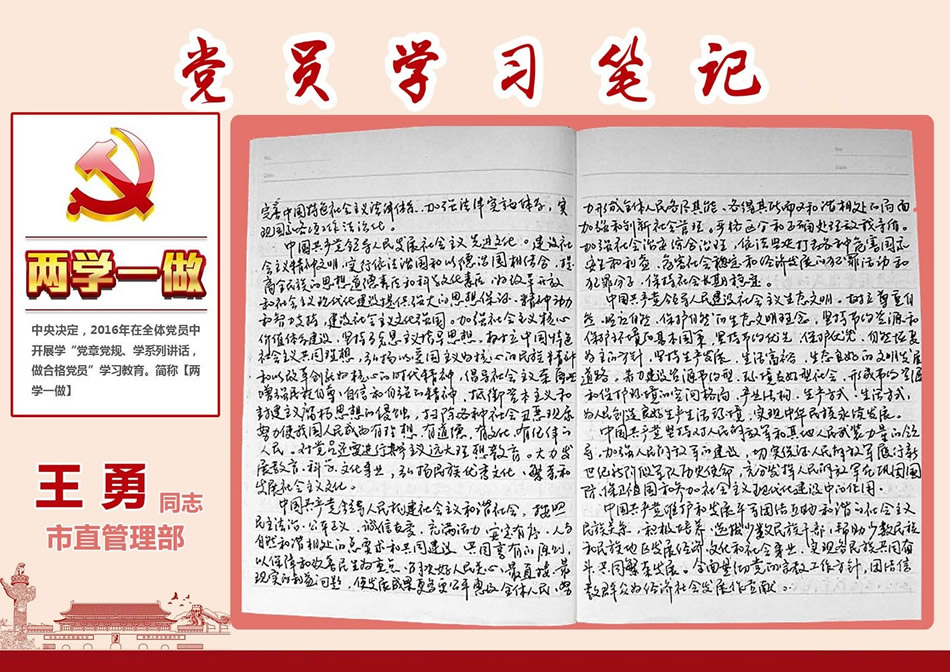 党员学习笔记
两学一做
中央决定，2016年在全体党员中
开展学“党章党规、学系列讲话，
做合格党员”学习教育。简称【两
学一做】
王勇 同志
市直管理部
完善中国特色社会主义法律体系，加强法律实施体系，实
现国家各项工作法治化。
中国共产党领导人民发展社会主义先进文化。建设社
会主义精神文明，实行依法治国和以德治国相结合，提
高全民族的思想道德素质和科学文化素质，为改革开放
和社会主义现代化建设提供强大的思想保证、精神动力
和智力支持，建设社会主义文化强国。加强社会主义核心
价值体系建设，坚持马克思主义指导思想，树立中国特色
社会主义共同理想，弘扬以爱国主义为核心的民族精神
和以改革创新为核心的时代精神，倡导社会主义荣辱观
增强民族自尊、自信和自强精神，抵御资本主义和
封建主义腐朽思想的侵蚀，扫除各种社会丑恶现象
努力使我国人民成为有理想、有道德、有文化、有纪律的
人民。对党员还要进行共产主义远大理想教育。大力发
展教育、科学、文化事业，弘扬民族优秀文化，繁荣和
发展社会主义文化。
中国共产党领导人民构建社会主义和谐社会。按照
民主法治、公平正义、诚信友爱、充满活力、安定有序、人与
自然和谐相处的总要求和共同建设、共同享有的原则，
以保障和改善民生为重点，解决好人民最关心、最直接、最
现实的利益问题，使发展成果更多更公平惠及全体人民，努
力形成全体人民各尽其能、各得其所而又和谐相处的局面
加强和创新社会管理。严格区分和正确处理敌我矛盾。
加强社会治安综合治理，依法坚决打击各种危害国家
安全和利益、危害社会稳定和经济发展的犯罪活动和
犯罪分子，保持社会长期稳定。
中国共产党领导人民建设社会主义生态文明。树立尊重自
然、顺应自然、保护自然的生态文明理念，坚持节约资源和
保护环境的基本国策，坚持节约优先、保护优先、自然恢复
为主的方针，坚持生产发展、生活富裕、生态良好的文明发展
道路。着力建设资源节约型、环境友好型社会，形成节约资源
和保护环境的空间格局、产业结构、生产方式、生活方式，
为人民创造良好生产生活环境，实现中华民族永续发展。
中国共产党坚持对人民解放军和其他人民武装力量的领
导，加强人民解放军的建设，切实保证人民解放军履行新
世纪新阶段军队历史使命，充分发挥人民解放军在巩固国
防、保卫祖国和参加社会主义现代化建设中的作用。
中国共产党维护和发展平等团结互助和谐的社会主义
民族关系，积极培养、选拔少数民族干部，帮助少数民族
和民族地区发展经济、文化和社会事业，实现各民族共同奋
斗、共同繁荣发展。全面贯彻党的宗教工作方针，团结信
教群众为经济社会发展作贡献。